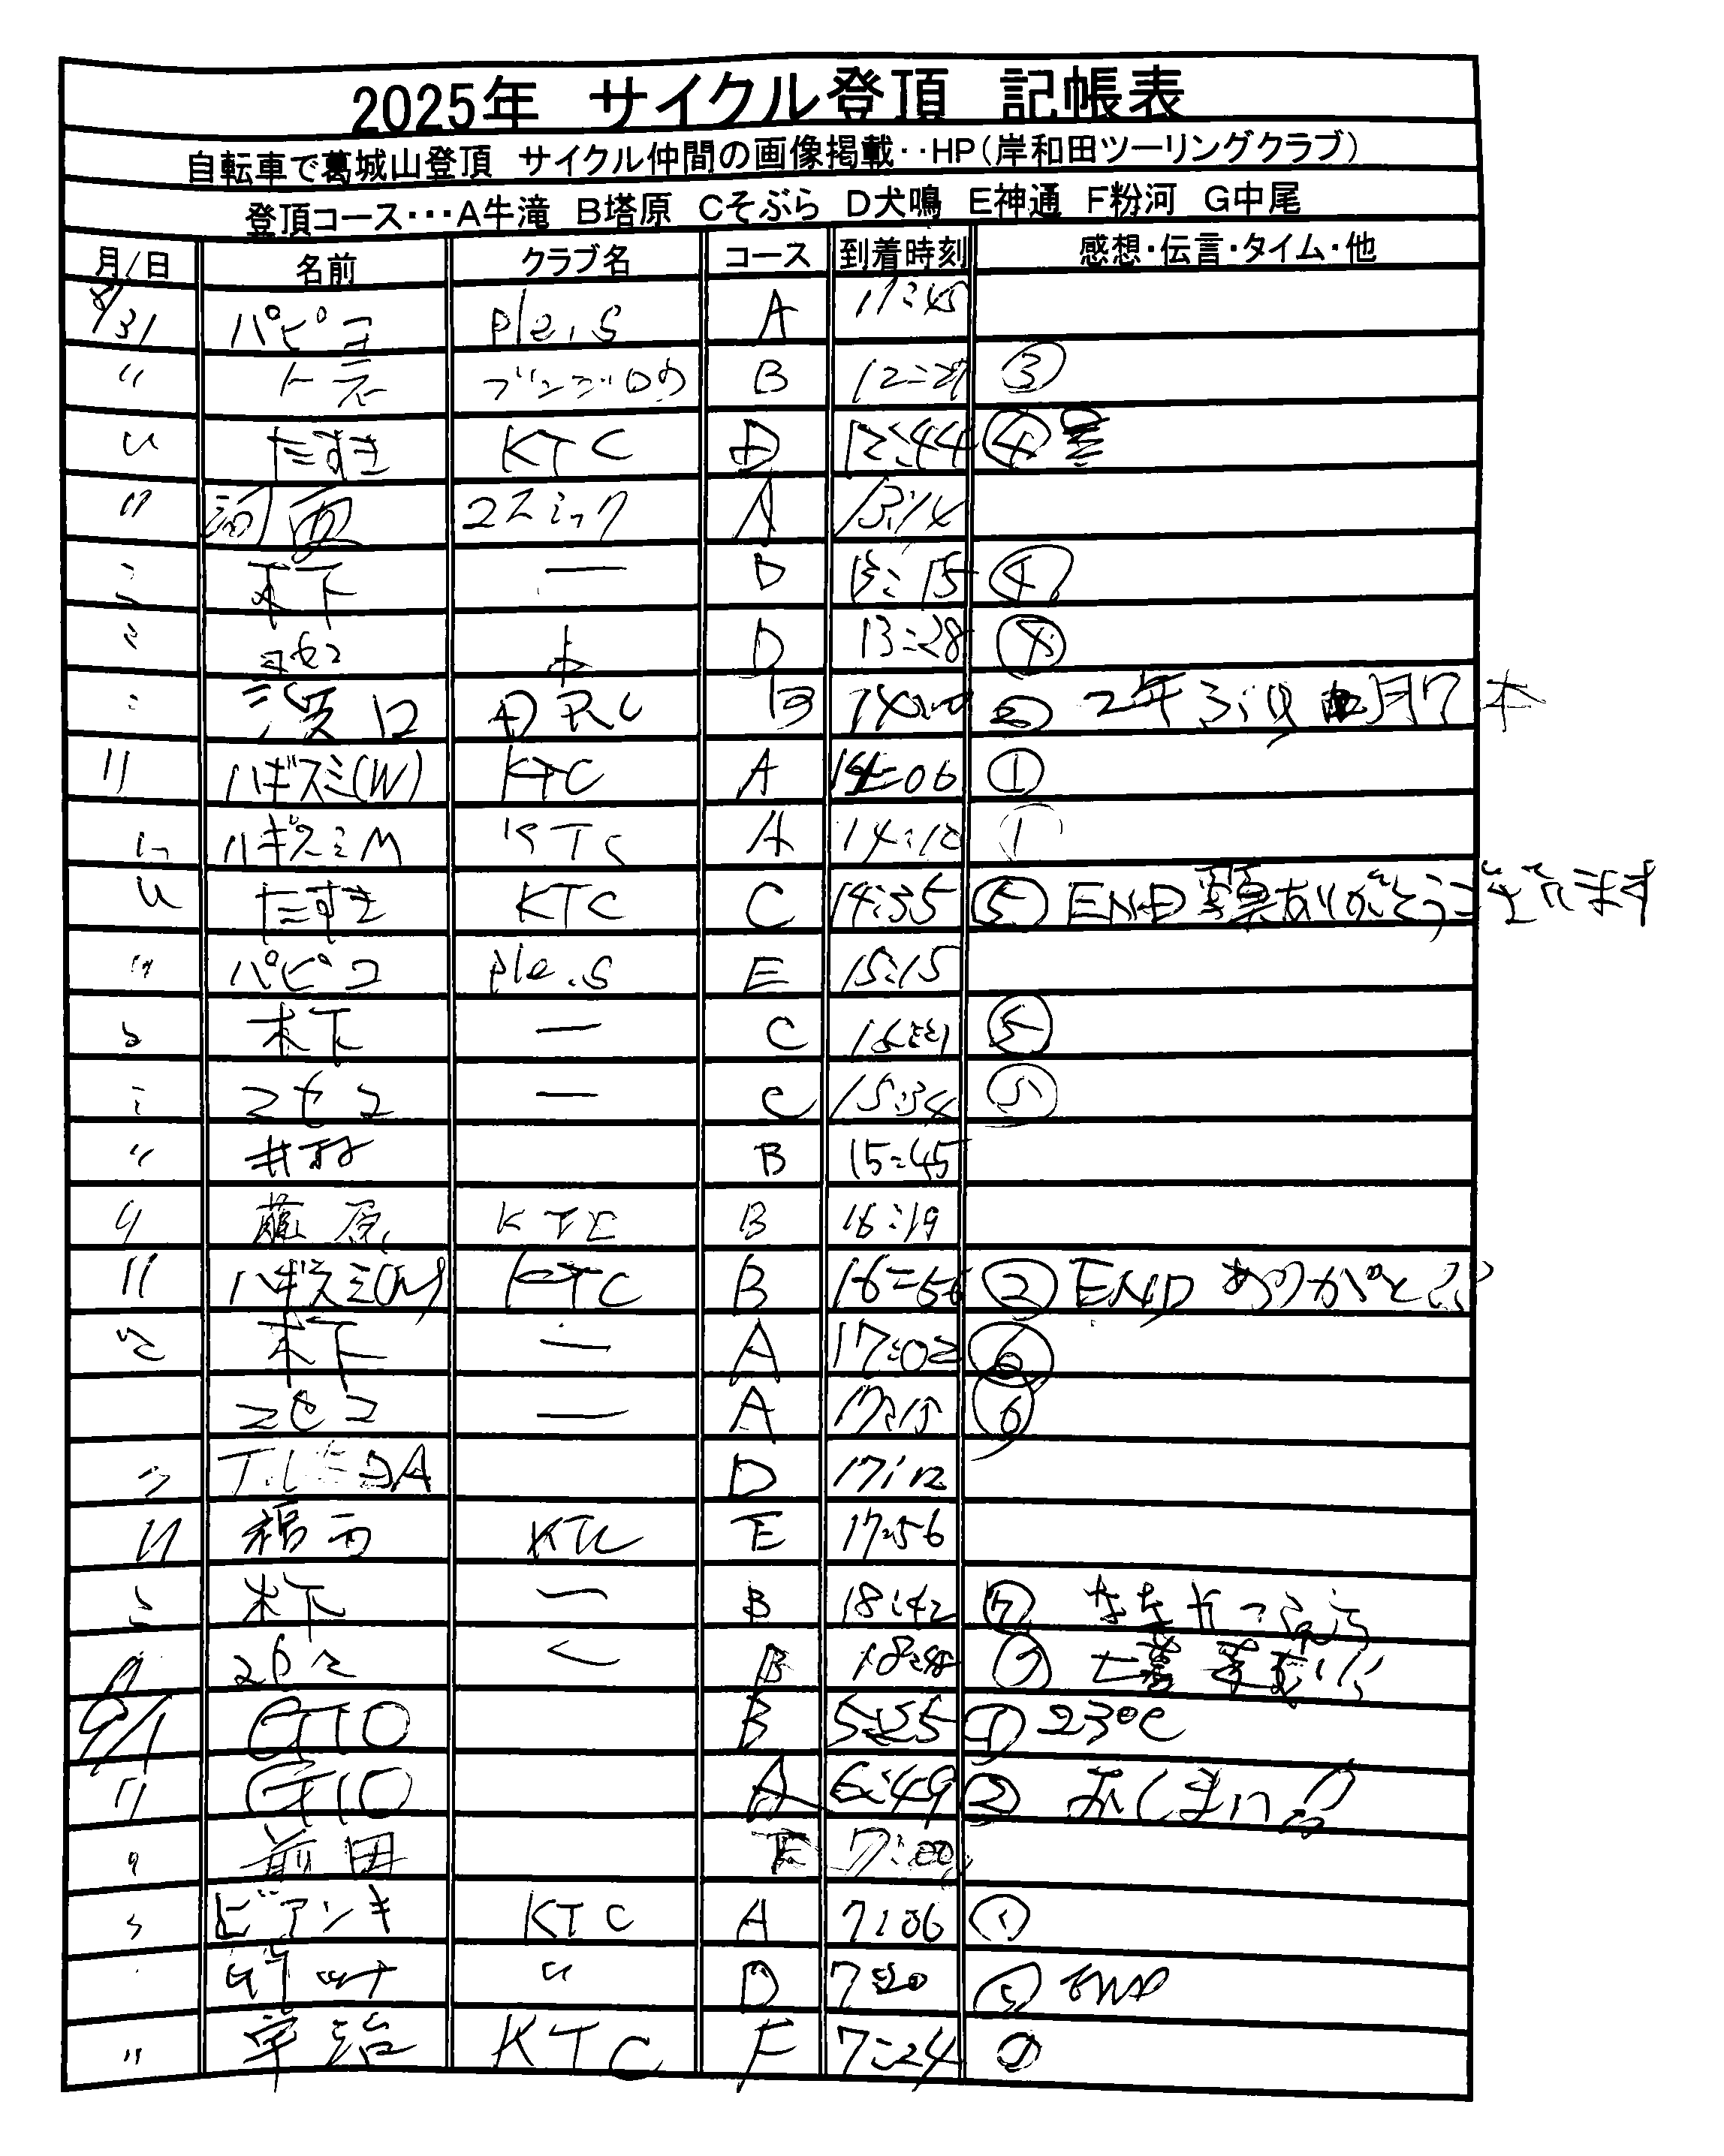 2025年 サイクル登頂 記帳表
自転車で葛城山登頂 サイクル仲間の画像掲載‥HP(岸和田ツーリングクラブ)
登頂コース…A牛滝 B塔原 Cそぶら D犬鳴 E神通 F粉河 G中尾
月/日 名前 クラブ名 コース 到着時刻 感想・伝言・タイム・他
8/31 パピコ ple.S A 11:45
〃 B ③
〃 たすき KTC D 12:44 ④
〃 河西 コスミック A 13:14
〃 木下 ー D 13:15 ④
〃 コセコ D 13:28 ④
〃 濱口 B 2年ぶり 月7本
〃 ハギスミ(W) KTC A 14:06 ①
〃 ハギスミM KTC A 14:12 ①
〃 たすき KTC C 14:35 ⑤ END ありがとうございます
〃 パピコ ple.S E 15:15
〃 木下 ー C ⑤
〃 コセコ ー C 15:34 ⑤
〃 井村 B 15:45
〃 藤原 KTC B 16:19
〃 ハギスミ(W) KTC B 16:56 ② END ありがとう
〃 木下 ー A 17:02 ⑥
コセコ ー A 17:15 ⑥
〃 D 17:12
〃 福西 KTC E 17:56
〃 木下 ー B 18:42 ⑦
〃 コセコ B 18:48 ⑦
9/1 GTO B 5:25 ① 23℃
〃 GTO A 6:49 ② おしまい!!
〃 前田 E 7:00
〃 ビアンキ KTC A 7:06 ①
〃 D 7:20 ⑤ END
〃 宇治 KTC F 7:24